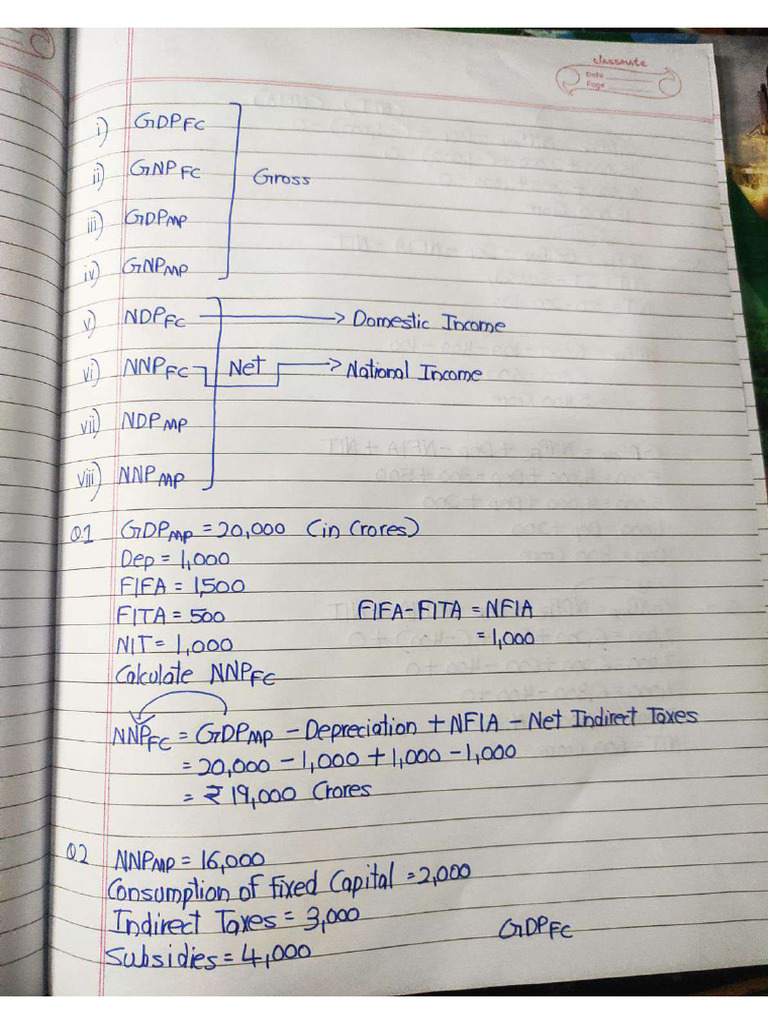 classmate
Date
Page
i) GDPFC
ii) GNPFC
Gross
iii) GDPMP
iv) GNPMP
v) NDPFC → Domestic Income
vi) NNPFC Net → National Income
vii) NDPMP
viii) NNPMP
Q.1 GDPMP = 20,000 (in Crores)
Dep = 1,000
FIFA = 1,500
FITA = 500 FIFA-FITA = NFIA
NIT = 1,000 = 1,000
Calculate NNPFC
NNPFC = GDPMP - Depreciation + NFIA - Net Indirect Taxes
= 20,000 - 1,000 + 1,000 - 1,000
= ₹ 19,000 Crores
Q.2 NNPMP = 16,000
Consumption of Fixed Capital = 2,000
Indirect Taxes = 3,000
GDPFC
Subsidies = 4,000